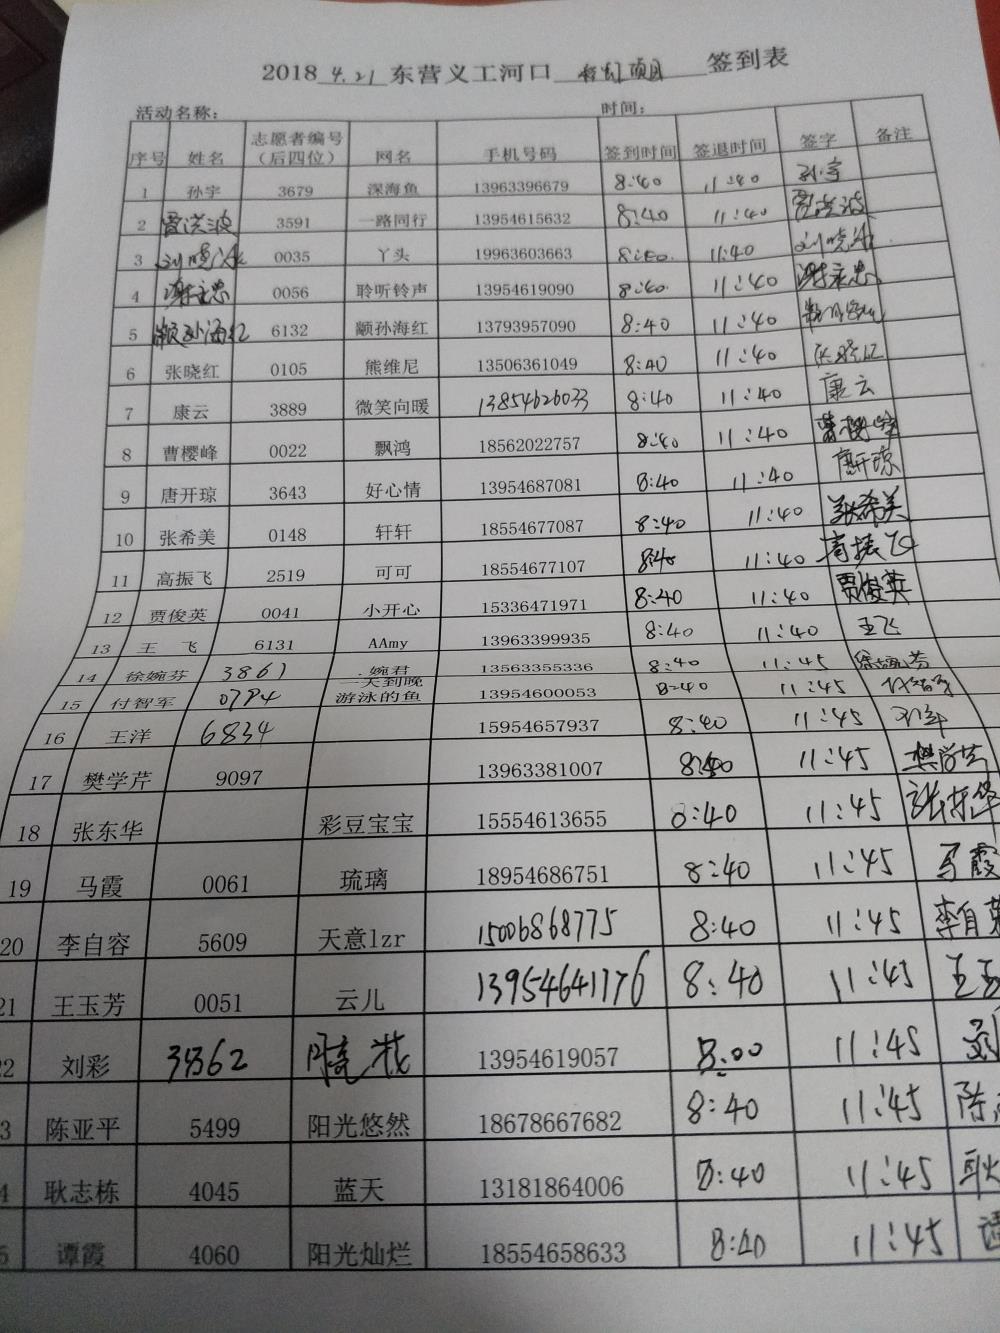 2018 4.21 东营义工河口 项目 签到表
活动名称: 时间:
序号 姓名 志愿者编号（后四位） 网名 手机号码 签到时间 签退时间 签字 备注
1 孙宇 3679 深海鱼 13963396679 8:40 11:40 孙宇
2 贾洪波 3591 一路同行 13954615632 8:40 11:40 贾洪波
3 刘晓冰 0035 丫头 19963603663 8:40 11:40 刘晓冰
4 谢立忠 0056 聆听铃声 13954619090 8:40 11:40 谢立忠
5 颛孙海红 6132 颛孙海红 13793957090 8:40 11:40
6 张晓红 0105 熊维尼 13506361049 8:40 11:40 张晓红
7 康云 3889 微笑向暖 13854626033 8:40 11:40 康云
8 曹樱峰 0022 飘鸿 18562022757 8:40 11:40 曹樱峰
9 唐开琼 3643 好心情 13954687081 8:40 11:40 唐开琼
10 张希美 0148 轩轩 18554677087 8:40 11:40 张希美
11 高振飞 2519 可可 18554677107 8:40 11:40 高振飞
12 贾俊英 0041 小开心 15336471971 8:40 11:40 贾俊英
13 王 飞 6131 AAmy 13963399935 8:40 11:40 王飞
14 徐婉芬 3861 婉君 13563355336 8:40 11:45 徐婉芬
15 付智军 0794 一天到晚游泳的鱼 13954600053 8:40 11:45 付智军
16 王洋 6834 15954657937 8:40 11:45 王洋
17 樊学芹 9097 13963381007 8:40 11:45 樊学芹
18 张东华 彩豆宝宝 15554613655 8:40 11:45 张东华
19 马霞 0061 琉璃 18954686751 8:40 11:45 马霞
20 李自容 5609 天意lzr 15006868775 8:40 11:45 李自荣
21 王玉芳 0051 云儿 13954641776 8:40 11:45 王玉
22 刘彩 3862 13954619057 8:00 11:45 刘
3 陈亚平 5499 阳光悠然 18678667682 8:40 11:45 陈
4 耿志栋 4045 蓝天 13181864006 8:40 11:45 耿
5 谭霞 4060 阳光灿烂 18554658633 8:40 11:45 谭